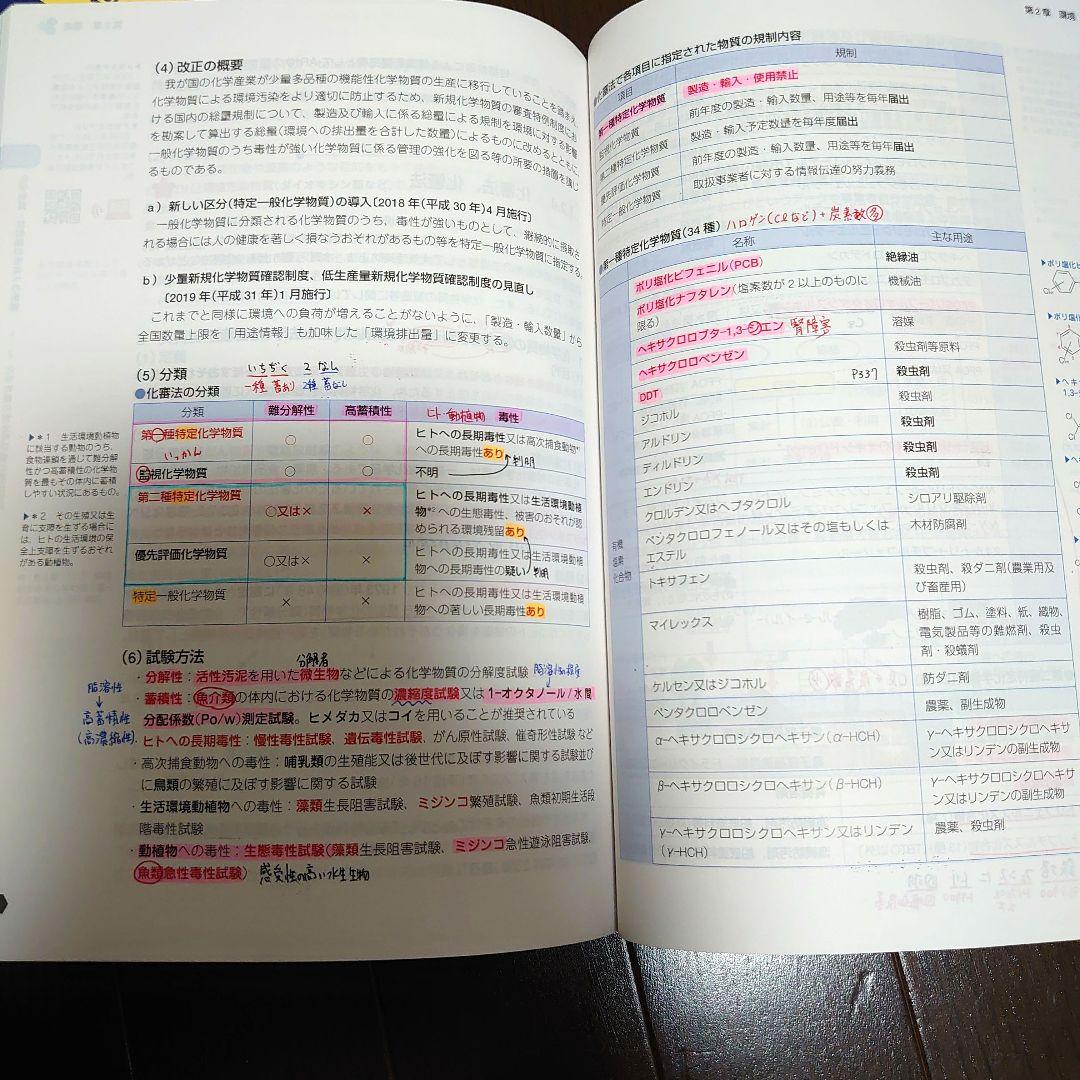 (4) 改正の概要
我が国の化学産業が少量多品種の機能性化学物質の生産に移行していることを踏まえ、
化学物質による環境汚染をより適切に防止するため、新規化学物質の審査特例制度にお
ける国内の総量規制について、製造及び輸入に係る総量による規制を環境に対する影響
を勘案して算出する総量(環境への排出量を合計した数量)によるものに改めるとともに、
一般化学物質のうち毒性が強い化学物質に係る管理の強化を図る等の所要の措置を講じ
るものである。
a) 新しい区分(特定一般化学物質)の導入〔2018年(平成30年)4月施行〕
一般化学物質に分類される化学物質のうち、毒性が強いものとして、継続的に摂取さ
れる場合には人の健康を著しく損なうおそれがあるもの等を特定一般化学物質に指定する。
b) 少量新規化学物質確認制度、低生産量新規化学物質確認制度の見直し
〔2019年(平成31年)1月施行〕
これまでと同様に環境への負荷が増えることがないように、「製造・輸入数量」から
全国数量上限を「用途情報」も加味した「環境排出量」に変更する。
(5) 分類
いちぢく 2 なし
一種 蓄あり 2種 蓄なし
●化審法の分類
分類 難分解性 高蓄積性 ヒト・動植物 毒性
第一種特定化学物質 ○ ○ ヒトへの長期毒性又は高次捕食動物*1
への長期毒性あり
いっかん
判明
監視化学物質 ○ ○ 不明
第二種特定化学物質 ○又は× × ヒトへの長期毒性又は生活環境動植
物*2への生態毒性、被害のおそれが認
められる環境残留あり
優先評価化学物質 ○又は× × ヒトへの長期毒性又は生活環境動植
物への長期毒性の疑い 判明
特定一般化学物質 × × ヒトへの長期毒性又は生活環境動植
物への著しい長期毒性あり
▶*1 生活環境動植物
に該当する動物のうち、
食物連鎖を通じて難分解
性かつ高蓄積性の化学物
質を最もその体内に蓄積
しやすい状況にあるもの。
▶*2 その生殖又は生
育に支障を生ずる場合に
は、ヒトの生活環境の保
全上支障を生ずるおそれ
がある動植物。
(6) 試験方法
分解者
・分解性：活性汚泥を用いた微生物などによる化学物質の分解度試験
脂溶性の程度
・蓄積性：魚介類の体内における化学物質の濃縮度試験又は1-オクタノール/水間
分配係数(Po/w)測定試験。ヒメダカ又はコイを用いることが推奨されている
脂溶性
↓
高蓄積性
(高濃縮性)
・ヒトへの長期毒性：慢性毒性試験、遺伝毒性試験、がん原性試験、催奇形性試験など
・高次捕食動物への毒性：哺乳類の生殖能又は後世代に及ぼす影響に関する試験並び
に鳥類の繁殖に及ぼす影響に関する試験
・生活環境動植物への毒性：藻類生長阻害試験、ミジンコ繁殖試験、魚類初期生活段
階毒性試験
・動植物への毒性：生態毒性試験(藻類生長阻害試験、ミジンコ急性遊泳阻害試験、
魚類急性毒性試験) 感受性の高い水生生物
第2章 環境
●化審法で各項目に指定された物質の規制内容
項目 規制
第一種特定化学物質 製造・輸入・使用禁止
監視化学物質 前年度の製造・輸入数量、用途等を毎年届出
第二種特定化学物質 製造・輸入予定数量を毎年度届出
優先評価化学物質 前年度の製造・輸入数量、用途等を毎年届出
特定一般化学物質 取扱事業者に対する情報伝達の努力義務
●第一種特定化学物質(34種) ハロゲン(Clなど)+炭素数多
名称 主な用途
有機
塩素
化合物
ポリ塩化ビフェニル(PCB) 絶縁油
ポリ塩化ナフタレン(塩素数が2以上のものに
限る) 機械油
ヘキサクロロブタ-1,3-ジエン 腎障害 溶媒
ヘキサクロロベンゼン 殺虫剤等原料
DDT P337 殺虫剤
ジコホル 殺虫剤
アルドリン 殺虫剤
ディルドリン 殺虫剤
エンドリン 殺虫剤
クロルデン又はヘプタクロル シロアリ駆除剤
ペンタクロロフェノール又はその塩もしくは
エステル 木材防腐剤
トキサフェン 殺虫剤、殺ダニ剤(農業用及
び畜産用)
マイレックス 樹脂、ゴム、塗料、紙、織物、
電気製品等の難燃剤、殺虫
剤・殺蟻剤
ケルセン又はジコホル 防ダニ剤
ペンタクロロベンゼン 農薬、副生成物
α-ヘキサクロロシクロヘキサン(α-HCH) γ-ヘキサクロロシクロヘキサ
ン又はリンデンの副生成物
β-ヘキサクロロシクロヘキサン(β-HCH) γ-ヘキサクロロシクロヘキサ
ン又はリンデンの副生成物
γ-ヘキサクロロシクロヘキサン又はリンデン
(γ-HCH) 農薬、殺虫剤
▶ポリ塩化ビ
▶ポリ塩化
1,3-